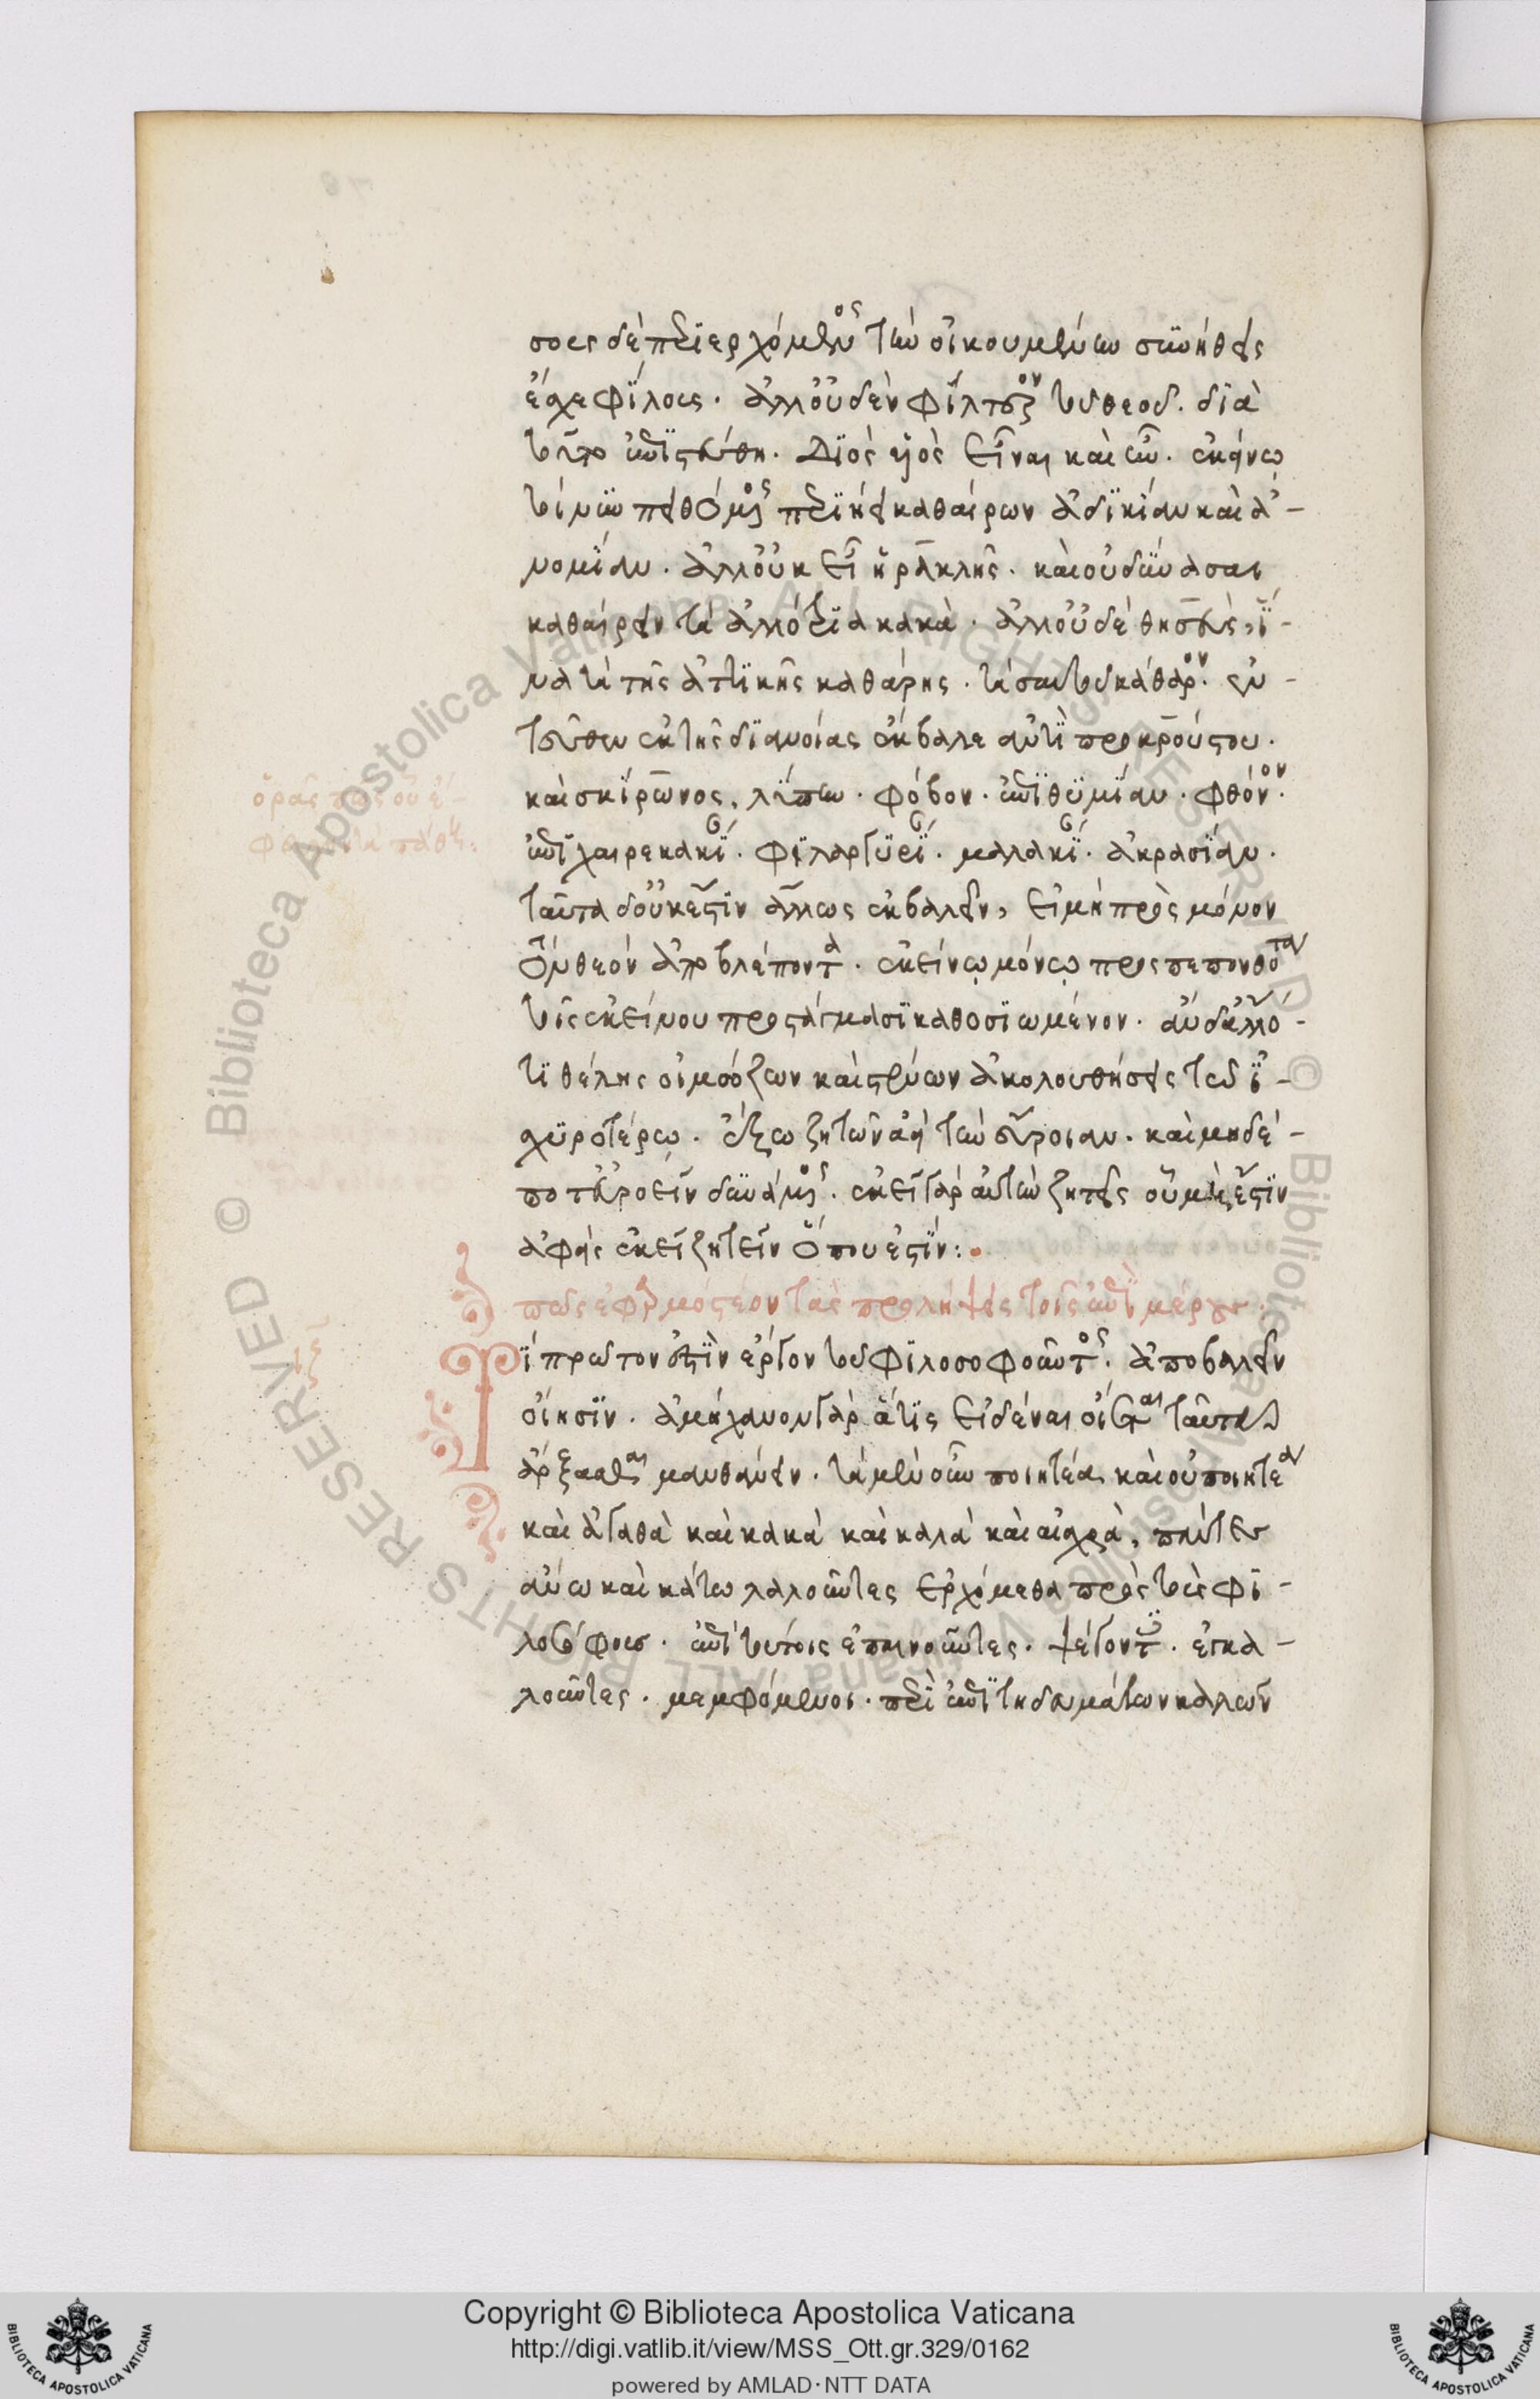 σους δὲ περιερχόμενος τὴν οἰκουμένην συνήθεις
ἔσχε φίλους· ἀλλ' οὐδὲν φίλτερον τοῦ θεοῦ· διὰ
τοῦτο ἐπιστεύθη· Διὸς υἱὸς εἶναι καὶ ἦν· ἐκείνῳ
τοίνυν πειθόμενος περιῄει καθαίρων ἀδικίαν καὶ ἀ-
νομίαν· ἀλλ' οὐκ εἶ ἡρακλῆς· καὶ οὐ δύνασαι
καθαίρειν τὰ ἀλλότρια κακὰ· ἀλλ' οὐδὲ θησεὺς, ἵ-
να τὰ τῆς ἀττικῆς καθάρῃς· τὰ σαυτοῦ κάθαρον· ἐν-
τεῦθεν ἐκ τῆς διανοίας ἔκβαλε ἀντὶ προκρούστου·
καὶ σκίρωνος, λύπην· φόβον· ἐπιθυμίαν· φθόνον·
ἐπιχαιρεκακίαν· φιλαργυρίαν· μαλακίαν· ἀκρασίαν·
ταῦτα δ' οὐκ ἔστιν ἄλλως ἐκβαλεῖν, εἰ μὴ πρὸς μόνον
τὸν θεὸν ἀποβλέποντα· ἐκείνῳ μόνῳ προσπεπονθότα
τοῖς ἐκείνου προστάγμασι καθοσιωμένον· ἂν δ' ἄλλο
τι θέλῃς οἰμώζων καὶ στένων ἀκολουθήσεις τῷ ἰ-
σχυροτέρῳ· ἔξω ζητῶν ἀεὶ τὴν εὔροιαν· καὶ μηδέ-
ποτ' εὐροεῖν δυνάμενος· ἐκεῖ γὰρ αὐτὴν ζητεῖς οὗ μή ἐστιν
ἀφεὶς ἐκεῖ ζητεῖν ὅπου ἐστίν:·
πῶς ἐφαρμοστέον τὰς προλήψεις τοῖς ἐπὶ μέρους·
Τί πρῶτόν ἐστιν ἔργον τοῦ φιλοσοφοῦντος· ἀποβαλεῖν
οἴησιν· ἀμήχανον γὰρ ἅ τις εἰδέναι οἴεται ταῦτα
ἄρξασθαι μανθάνειν· τὰ μὲν οὖν ποιητέα καὶ οὐ ποιητέα
καὶ ἀγαθὰ καὶ κακὰ καὶ καλὰ καὶ αἰσχρὰ, πάντες
ἄνω καὶ κάτω λαλοῦντες ἐρχόμεθα πρὸς τοὺς φι-
λοσόφους· ἐπὶ τούτοις ἐπαινοῦντες· ψέγοντες· ἐγκα-
λοῦντες· μεμφόμενοι· περὶ ἐπιτηδευμάτων καλῶν
Copyright © Biblioteca Apostolica Vaticana
http://digi.vatlib.it/view/MSS_Ott.gr.329/0162
powered by AMLAD·NTT DATA